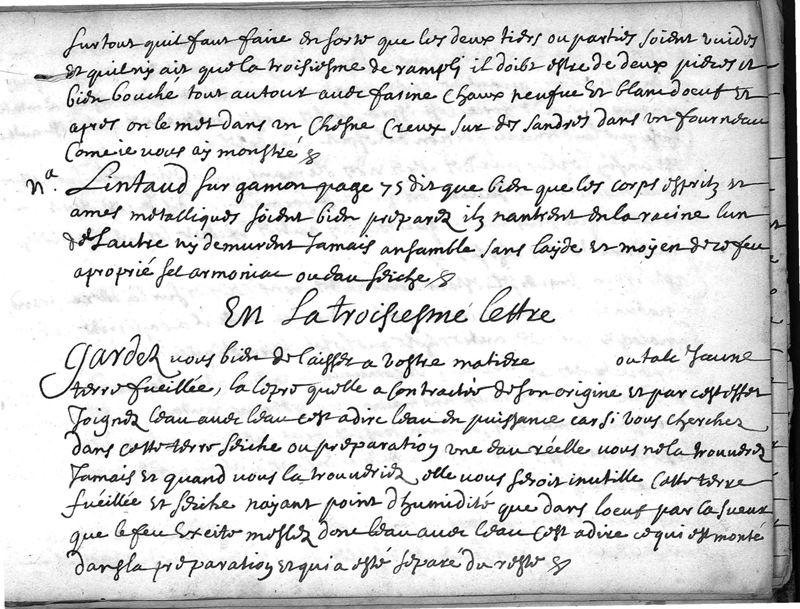 surtout quil faut faire en sorte que les deux tiers ou parties soient vuides
et quil ny ait que la troisiesme de rampli il doibt estre de deux pieces et
bien bouche tout autour avec farine Chaux neufue et blanc doeuf et
apres on le met dans un Chesne Creux sur des sandres dans un fourneau
Come ie vous ay monstré
Na. Lintaud sur gamon page 75 dit que bien que les corps espritz et
ames metalliques soient bien preparez ilz nantrent en la racine lun
de Lautre ny demurent Jamais ansamble sans layde et moyen de ce feu
aproprié sel armoniac ou eau seiche
En La troisiesme lettre
Gardez vous bien de laisser a vostre matiere ou talc Jaune
terre fueillée, la lepre quelle a contractée de son origine et par cest effet
Joignez leau avec leau cest a dire leau en puissance car si vous cherchez
dans cette terre seiche ou preparation une eau réelle vous ne la trouverez
Jamais et quand vous la trouveriez elle vous seroit inutille cette terre
fueillée et seiche nayant point dhumidité que dans loeuf par la sueur
que le feu Excite meslez donc leau avec leau cest a dire ce qui est monté
dans la preparation et qui a esté separé du reste